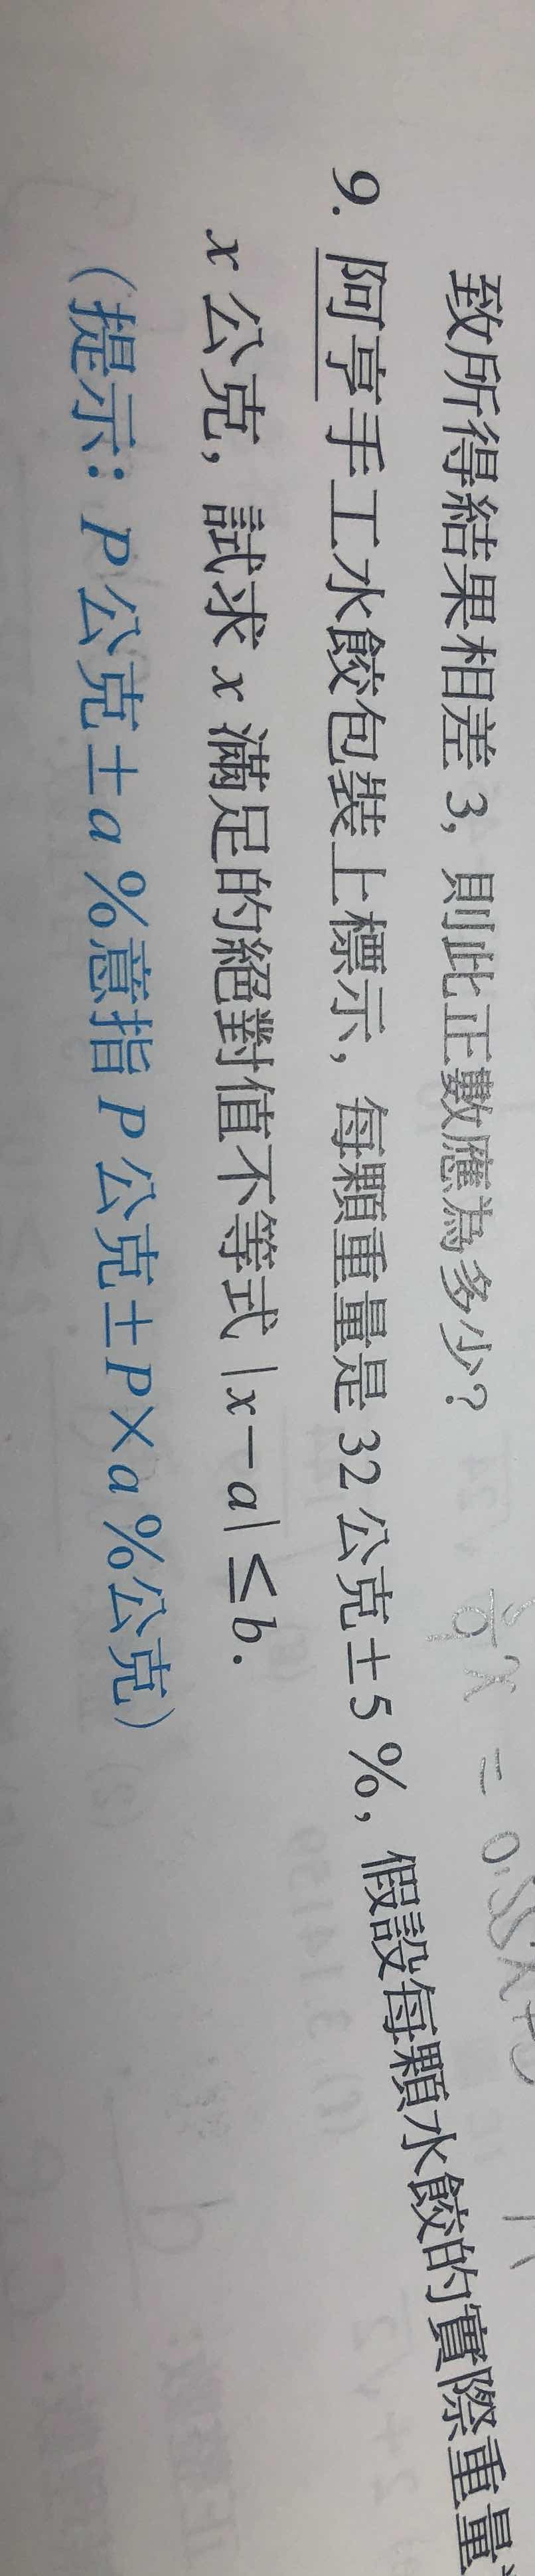 致所得結果相差 3, 則此正數應為多少?
9. 阿亨手工水餃包裝上標示, 每顆重量是 32 公克±5 %, 假設每顆水餃的實際重量
x 公克, 試求 x 滿足的絕對值不等式 |x-a|≤b.
(提示: P 公克±a %意指 P 公克±P×a %公克)